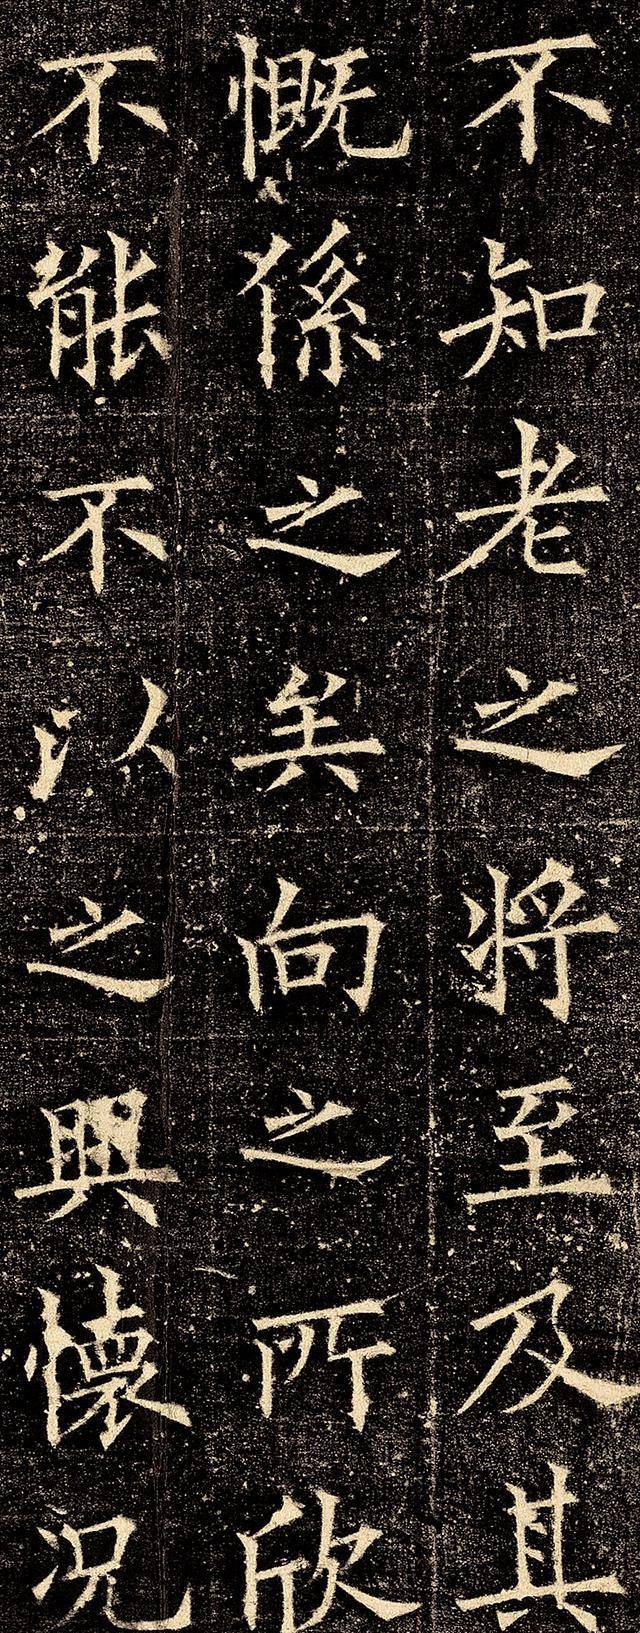 不知老之將至及其
慨係之矣向之所欣
不能不以之興懷况